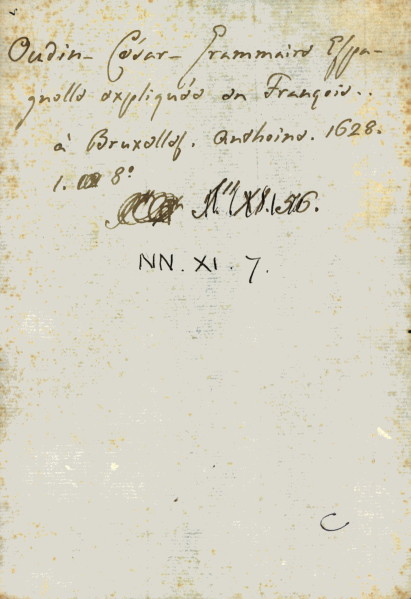 Oudin- César- Grammaire Espa-
gnolle expliquée en François..
à Bruxelles. Anthoine. 1628.
1. 8º
NN. XI. 7.
C